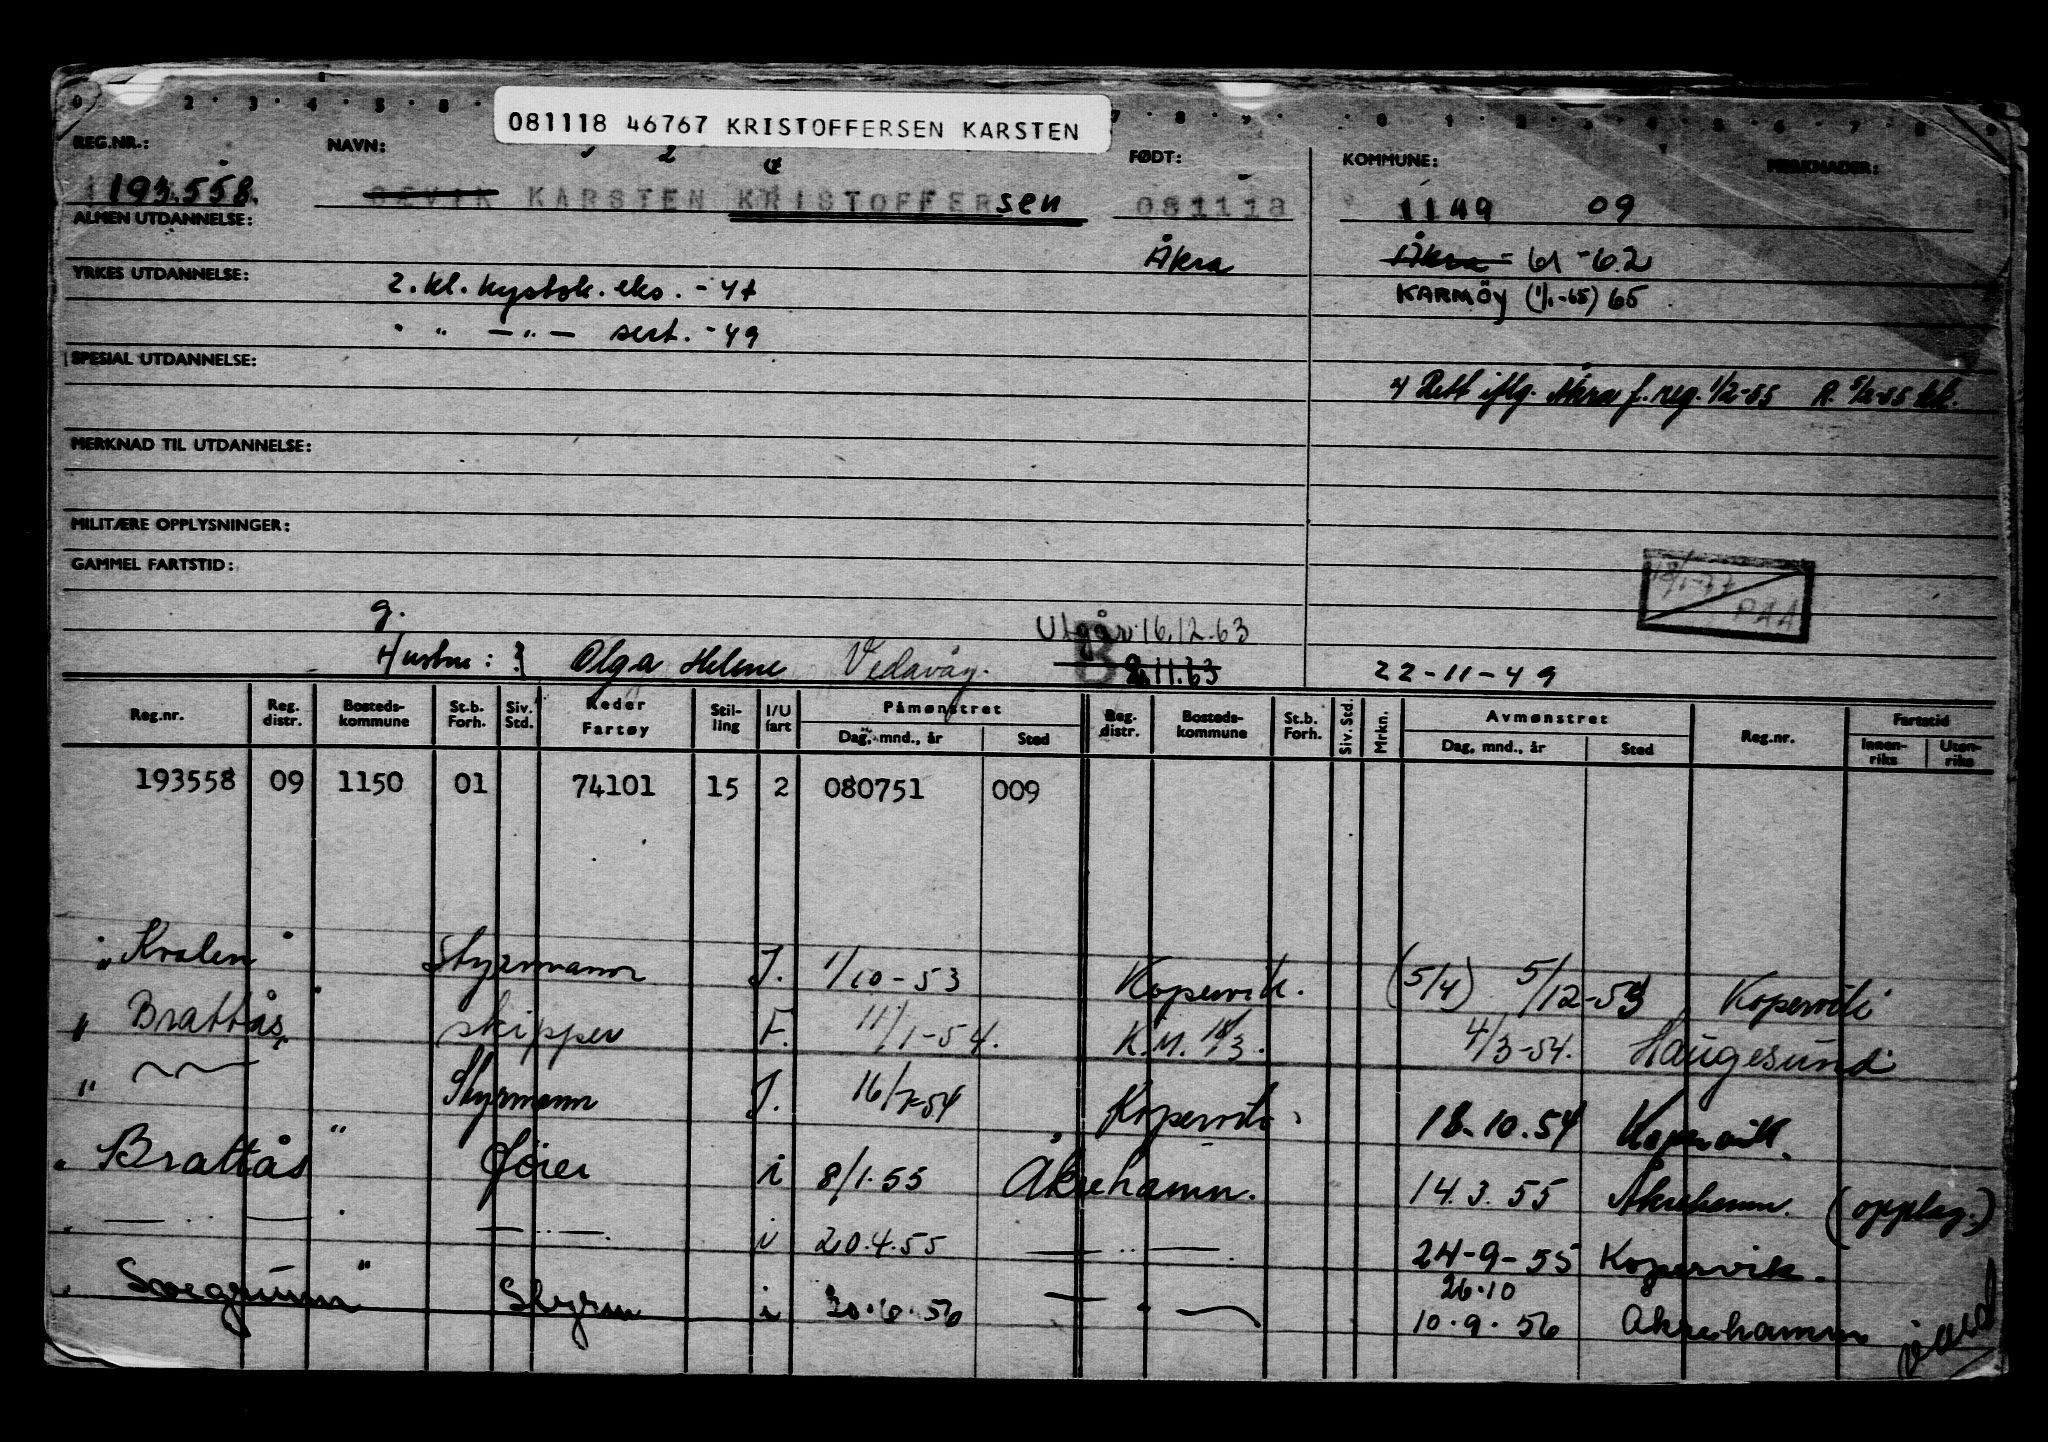 0 2 3 4 5 8 7 8 9 0 1 2 3 4 5 6 7 8 9
081118 46767 KRISTOFFERSEN KARSTEN
REG.NR.: NAVN: FØDT: KOMMUNE: MERKNADER:
193.558. SEVIK KARSTEN KRISTOFFERsen 081118 1149 09
ALMEN UTDANNELSE:
Åkra Åkra - 61 - 62
YRKES UTDANNELSE: 2. kl. kystsk. eks. - 47 KARMÖY (1/1-65) 65
" " — " — sert. - 49
SPESIAL UTDANNELSE:
Rett iflg. Åkra f. reg. 1/2-55 R. 5/2-55
MERKNAD TIL UTDANNELSE:
MILITÆRE OPPLYSNINGER:
GAMMEL FARTSTID:
PAA
g. Utgår 16.12.63
Hustru: Olga Helene Vedavåg. B 2.11.63 22-11-49
Reg.nr. Reg. distr. Bosteds-kommune St.b. Forh. Siv. Std. Reder Fartøy Stil-ling I/U fart Påmønstret Reg. distr. Bosteds-kommune St.b. Forh. Siv. Std. Mrkn. Avmønstret Reg.nr. Fartstid
Dag, mnd., år Sted Dag, mnd., år Sted Innen-riks Uten-riks
193558 09 1150 01 74101 15 2 080751 009
" Kvalen " Styrmann I. 1/10-53 Kopervik. (5/4) 5/12-53 Kopervik
" Brattås " skipper F. 11/1-54. K.M. 18/3. 4/3-54. Haugesund
" Styrmann I. 16/7-54 Kopervik. 18.10.54 Kopervik.
" Brattås " i 8/1.55 Åkrehamn. 14.3.55 Åkrehamn. (opplag.)
" — — " — " — i 20.4.55 — " — 24-9-55 Kopervik.
26.10
" " Styrm i 10.9.56 Åkrehamn